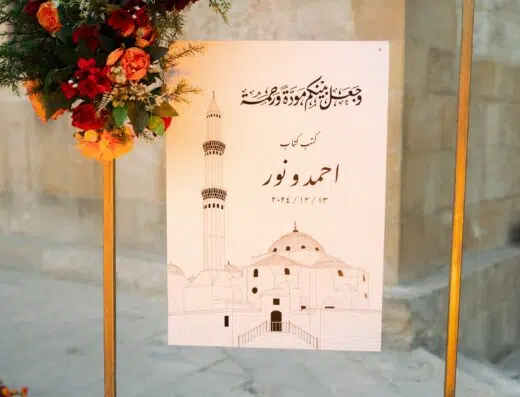 وجعل بينكم مودة ورحمة
كتب كتاب
احمد و نور
٢٠٢٤ / ١٢ / ١٣